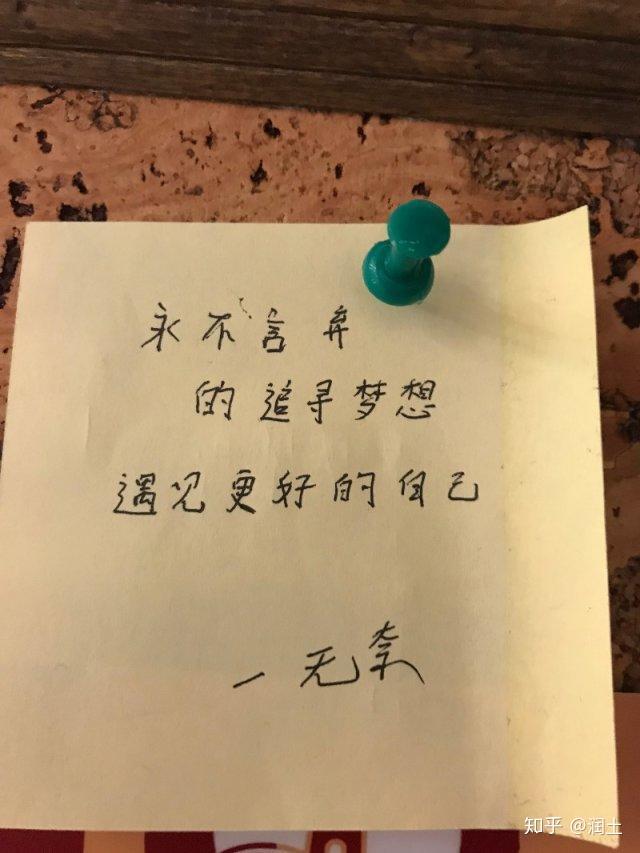 永不言弃
的追寻梦想
遇见更好的自己
一 无奈
知乎 @润土